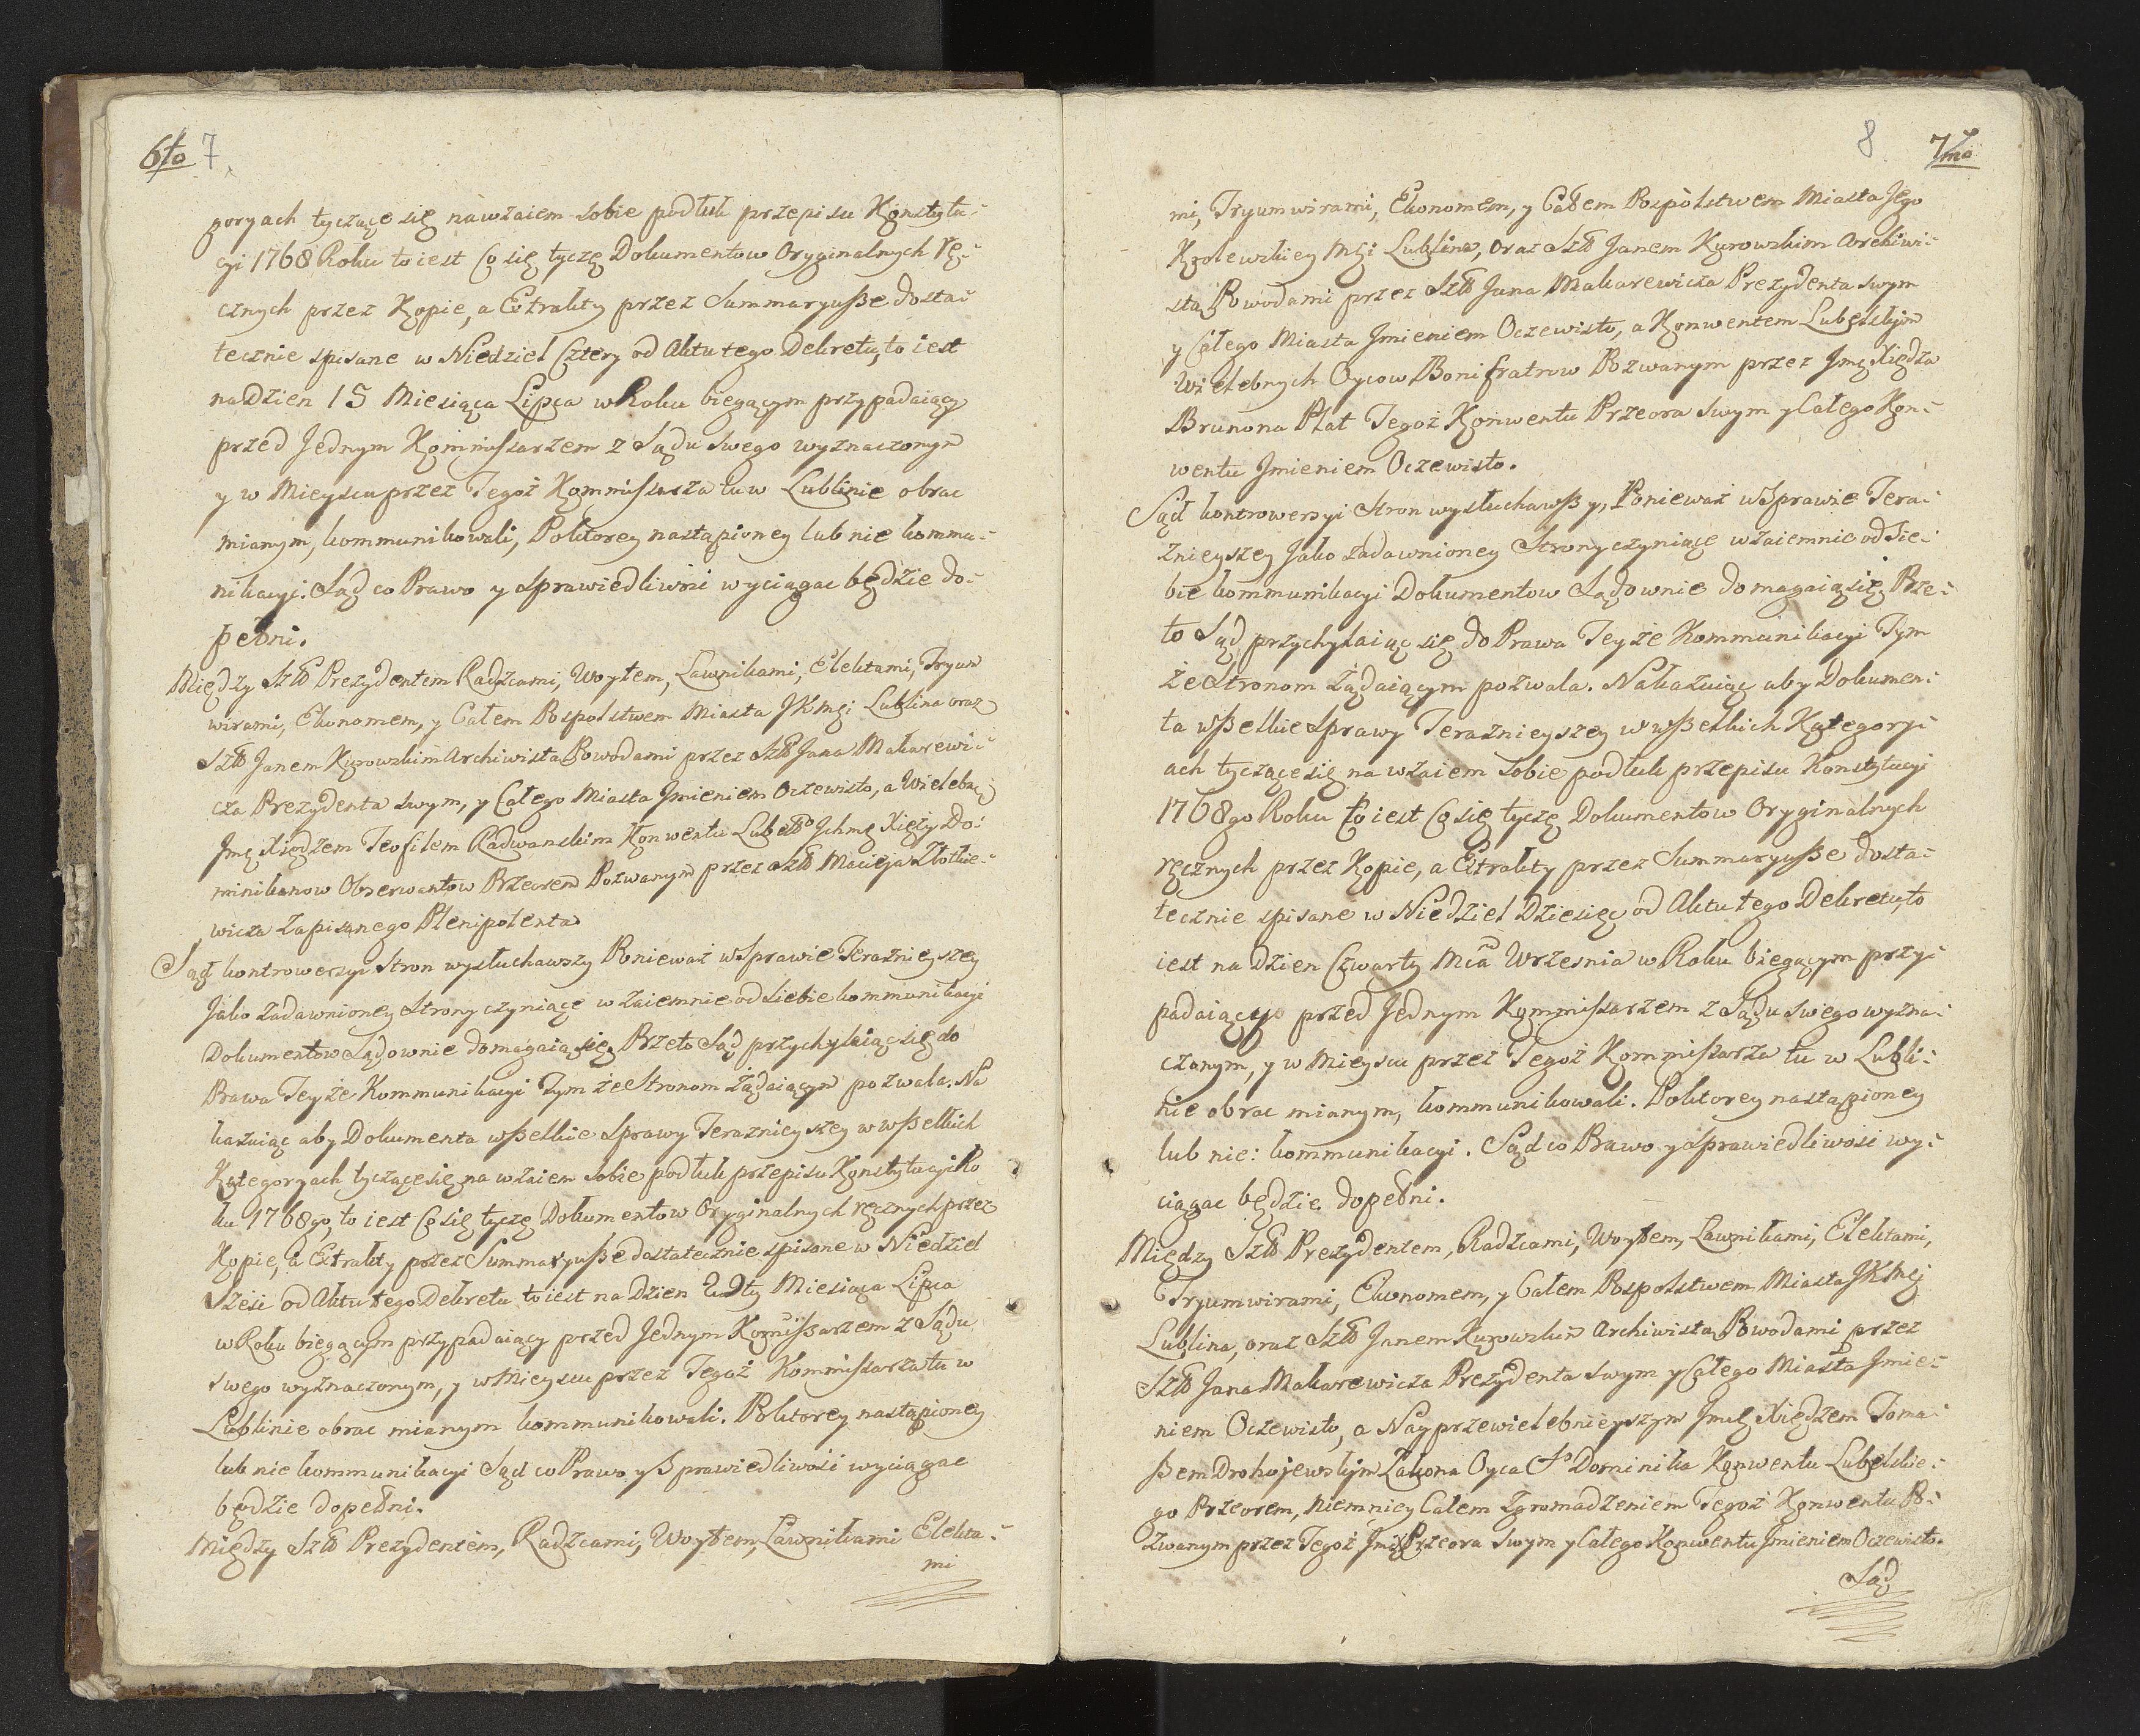 6to 7
goryach tyczące się nawzaiem sobie podług przepisu Konstytu-
cyi 1768 Roku to iest Co się tycze Dokumentow Oryginalnych rę-
cznych przez Kopie, a Extrakty przez Summaryusze dosta-
tecznie spisane w Niedziel Cztery od Aktu tego Dekretu, to iest
na Dzien 15 Miesiąca Lipca w Roku biegącym przypadaiący
przed Jednym Kommissarzem z Sądu Swego wyznaczonym
y w Mieyscu przez Tegoż Kommissarza tu w Lublinie obrac
mianym, kommunikowali, Poktorey nastąpioney lub nie kommu-
nikacyi. Sąd co Prawo y Sprawiedliwosi wyciągac będzie do-
pełni.
Między Szl Prezydentem Radzcami, Woytem, Ławnikami, Elektami, Tryum
wirami, Ekonomem, y Całem Pospolstwem Miasta JKMci Lublina oraz
Szl Janem Kurowskim Archiwistą Powodami przez Szl Jana Makarewi-
cza Prezydenta swym, y Całego Miasta Jmieniem Oczewisto, a Wielebnym
Jmę Xiędzem Teofilem Radwanskim Konwentu Lubel Jchmę Xięży Do-
minikanow Obserwantow Przeorem Pozwanym przez Szl Macieja Złotkie-
wicza Zapisanego Plenipotenta
Sąd kontrowersyi Stron wysłuchawszy Ponieważ w Sprawie Teraznieyszey
Jako zadawnioney Strony czyniące wzaiemnie od siebie kommunikacyi
Dokumentow Sądownie domagaią się, Przeto Sąd przychylaiąc się do
Prawa Teyże Kommunikacyi Tymże Stronom Żądaiącym pozwala. Na
kazuiąc aby Dokumenta wszelkie Sprawy Teraznieyszey w wszelkich
Kategoryach tyczące się na wzaiem sobie podług przepisu Konstytucyi Ro
ku 1768go, to iest Co się tycze Dokumentow Oryginalnych ręcznych przez
Kopie, a Extrakty przez Summaryusze dostatecznie spisane w Niedziel
Szesi od Aktu tego Dekretu to iest na Dzien 29ty Miesiąca Lipca
w Roku biegącym przypadaiący przed Jednym Kommissarzem z Sądu
swego wyznaczonym, y w Mieyscu przez Tegoż Kommissarza tu w
Lublinie obrac mianym kommunikowali. Poktorey nastąpioney
lub nie kommunikacyi Sąd co Prawo y Sprawiedliwosi wyciągac
będzie dopełni.
Między Szl Prezydentem, Radzcami, Woytem, Ławnikami Elekta-
mi
8 7mo
mi, Tryumwirami, Ekonomem, y Całem Pospòlstwem Miasta Jego
Krolewskiey Mci Lublina, oraz Szl Janem Kurowskim Archiwi-
stą Powodami przez Szl Jana Makarewicza Prezydenta swym
y Całego Miasta Jmieniem Oczewisto, a Konwentem Lubelskim
Wielebnych Oycow Bonifratrow Pozwanym przez Jmę Xiędza
Brunona Plat Tegoż Konwentu Przeora Swym y Całego Kon-
wentu Jmieniem Oczewisto.
Sąd kontrowersyi Stron wysłuchawszy, Ponieważ w Sprawie Tera-
znieyszey Jako zadawnioney Strony czyniące wzaiemnie od Sie-
bie kommunikacyi Dokumentow Sądownie domagaią się, Prze-
to Sąd przychylaiąc się do Prawa Teyże Kommunikacyi Tym
że Stronom Żądaiącym pozwala. Nakazuiąc aby Dokumen-
ta wszelkie Sprawy Teraznieyszey w wszelkich Kategory-
ach tyczące się na wzaiem sobie podług przepisu Konstytucyi
1768go Roku to iest Co się tycze Dokumentow Oryginalnych
ręcznych przez Kopie, a Extrakty przez Summaryusze dosta-
tecznie spisane w Niedziel Dziesięć od Aktu tego Dekretu, to
iest na Dzien Czwarty Mca Wrzesnia w Roku biegącym przy-
padaiący przed Jednym Kommissarzem z Sądu Swego wyzna-
czonym, y w Mieyscu przez Tegoż Kommissarza tu w Lubli-
nie obrac mianym, kommunikowali. Poktorey nastąpioney
lub nie: kommunikacyi. Sąd co Prawo y Sprawiedliwosi wy-
ciągac będzie dopełni.
Między Szl Prezydentem, Radzcami, Woytem, Ławnikami, Elektami,
Tryumwirami, Ekonomem, y Całem Pospolstwem Miasta JKMci
Lublina, oraz Szl Janem Kurowskim Archiwistą Powodami przez
Szl Jana Makarewicza Prezydenta Swym y Całego Miasta Jmie-
niem Oczewisto, a Nayprzewielebnieyszym Jmę Xiędzem Toma-
szem Drohojewskim Zakonu Oyca So Dominika Konwentu Lubelskie-
go Przeorem, niemniey Całem Zgromadzeniem Tegoż Konwentu Po-
zwanym przez Tegoż Jmę Przeora Swym y Całego Konwentu Jmieniem Oczewisto.
Sąd